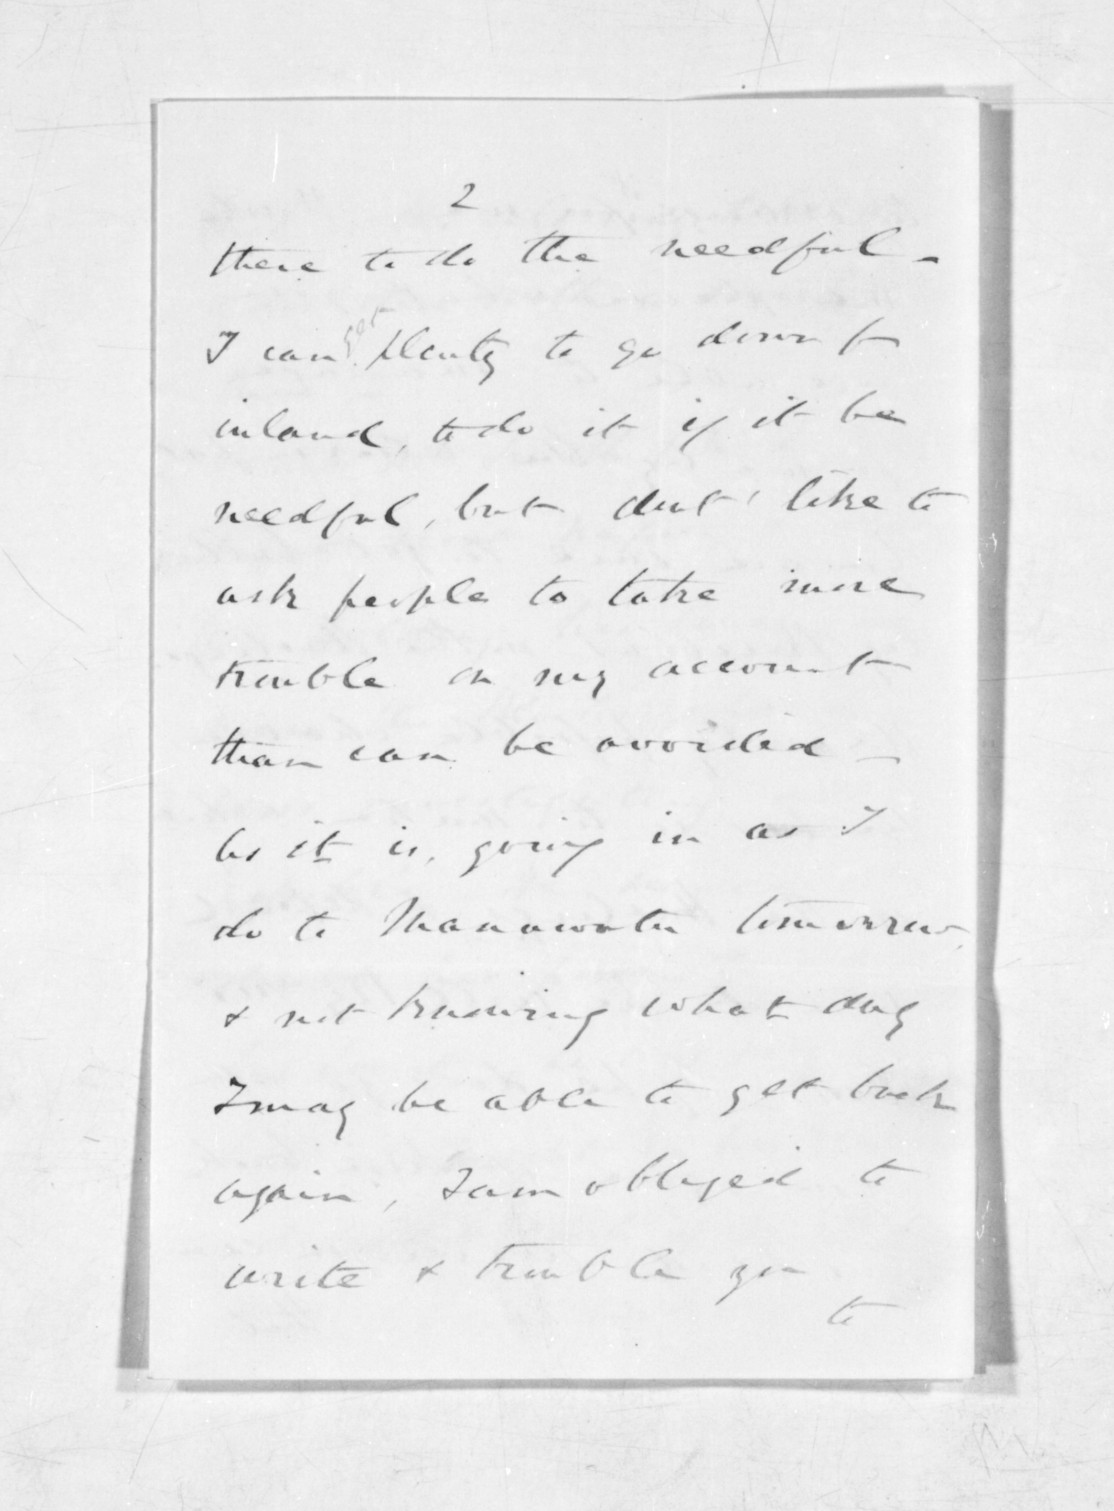 2
there to do the needful -
I can get plenty to go down fr
inland, to do it if it be
needful, but dont like to
ask people to take more
trouble on my account
than can be avoided -
As it is, going in as I
do to Manawatu tomorrow,
& not knowing what day
I may be able to get back
again, I am obliged to
write & trouble you
to